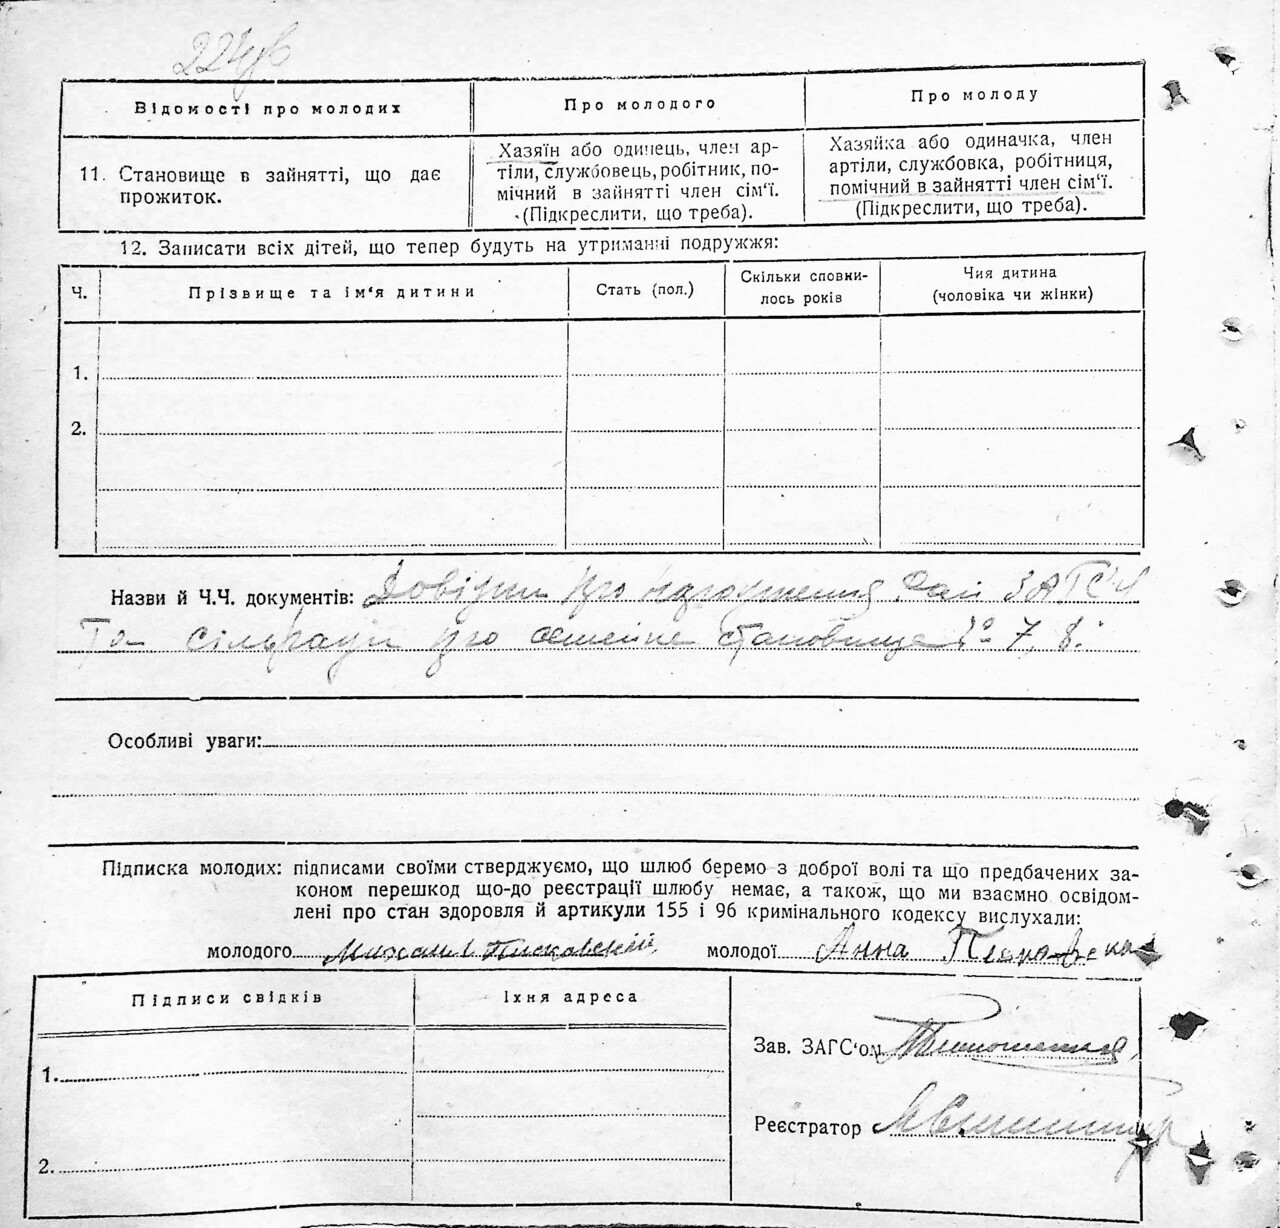 224зв
Відомості про молодих
Про молодого
Про молоду
11. Становище в зайнятті, що дає
прожиток.
Хазяїн або одинець, член ар-
тілі, службовець, робітник, по-
мічний в зайнятті член сім'ї.
(Підкреслити, що треба).
Хазяйка або одиначка, член
артілі, службовка, робітниця,
помічний в зайнятті член сім'ї.
(Підкреслити, що треба).
12. Записати всіх дітей, що тепер будуть на утриманні подружжя:
Ч.
Прізвище та ім'я дитини
Стать (пол.)
Скільки сповни-
лось років
Чия дитина
(чоловіка чи жінки)
1.
2.
Назви й Ч.Ч. документів: Довідки про народження Рай ЗАГС'у
та сільради про сімейне становище № 7, 8.
Особливі уваги:
Підписка молодих: підписами своїми стверджуємо, що шлюб беремо з доброї волі та що предбачених за-
коном перешкод що-до реєстрації шлюбу немає, а також, що ми взаємно освідом-
лені про стан здоровля й артикули 155 і 96 кримінального кодексу вислухали:
молодого Михаил Писковский молодої Анна
Підписи свідків
Їхня адреса
1.
2.
Зав. ЗАГС'ом
Реєстратор